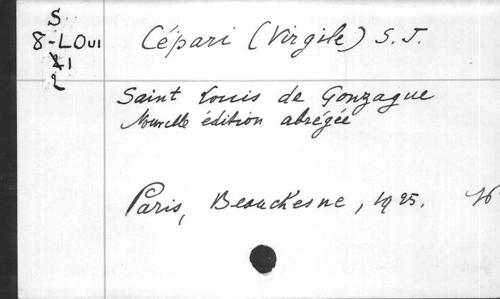 S
8-LOui
Cépari (Virgile) S.J.
2
Saint Louis de Gonzague
Nouvelle édition abrégée
Paris, Beauchesne, 1925.